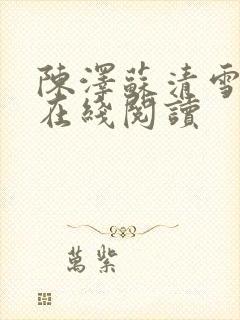 陳澤蘇清雪
在綫閱讀
萬紫